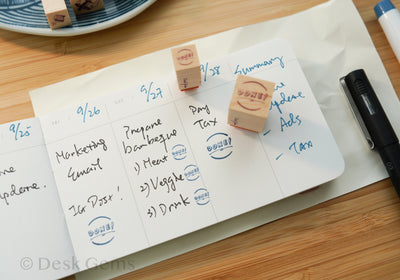 9/25
9/26
9/27
9/28
Summary
Marketing
Email
IG Post!
DONE!
Prepare
barbeque
1) Meat DONE!
2) Veggie DONE!
3) Drink DONE!
Pay
Tax
DONE!
DONE!
DONE!
- Ads
- Tax
© Desk Gems